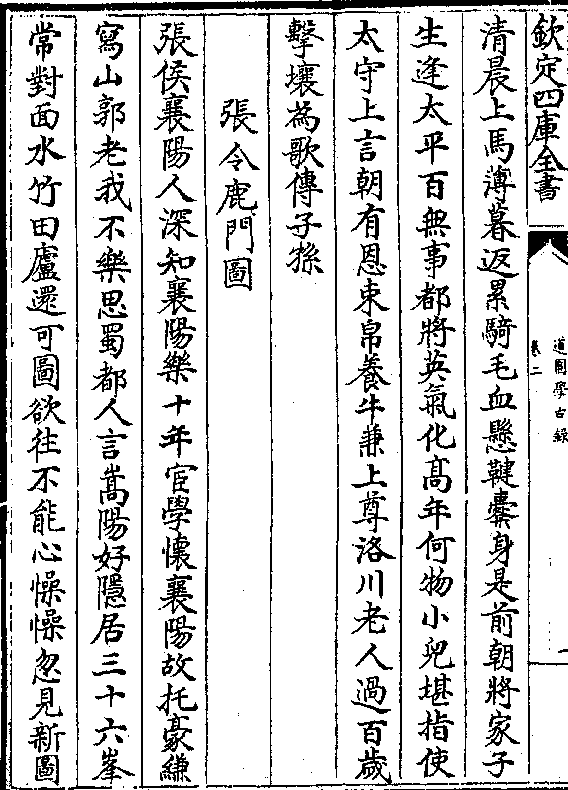 欽定四庫全書
道園學古録
卷二
清晨上馬薄暮返累騎毛血懸鞬櫜身是前朝將家子
生逢太平百無事都將英氣化髙年何物小兒堪指使
太守上言朝有恩束帛養牛兼上尊洛川老人過百歲
擊壤為歌傳子孫
張令鹿門圖
張侯襄陽人深知襄陽樂十年宦學懷襄陽故托豪縑
寫山郭老我不樂思蜀都人言嵩陽好隱居三十六峯
常對面水竹田廬還可圖欲往不能心懆懆忽見新圖